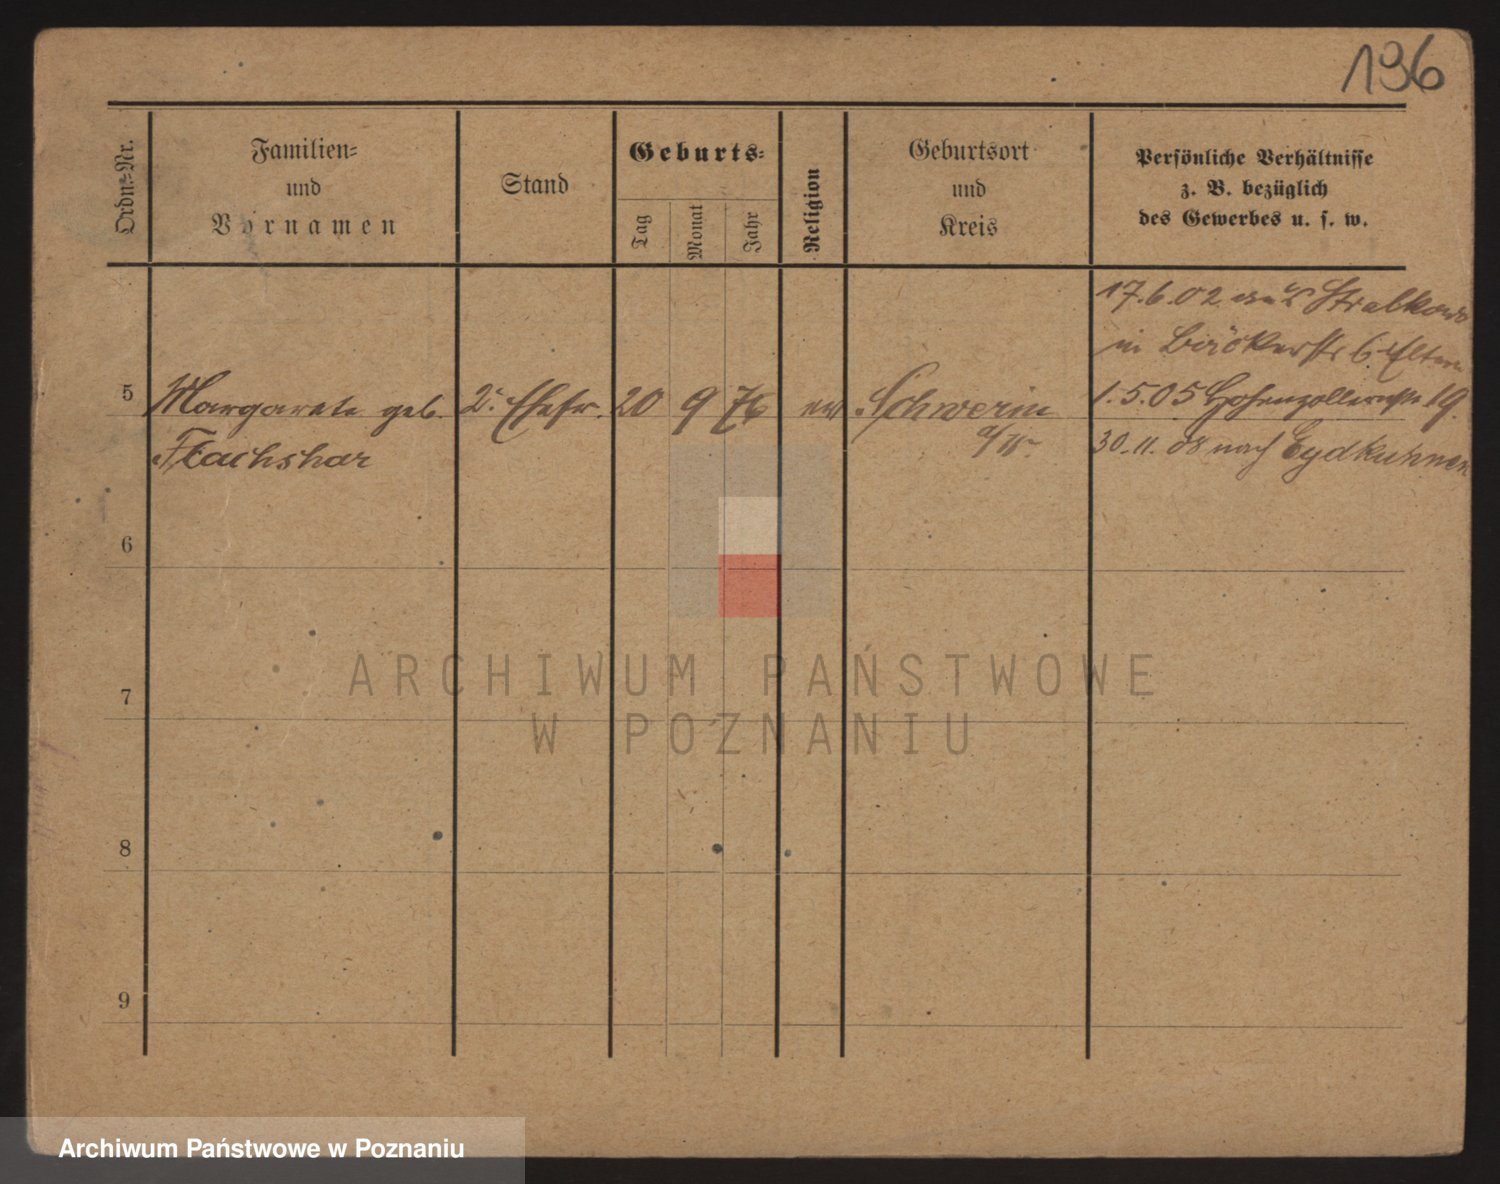 196
Ordn.-Nr.
Familien-
und
Vornamen
Stand
Geburts-
Tag
Monat
Jahr
Religion
Geburtsort
und
Kreis
Persönliche Verhältnisse
z. B. bezüglich
des Gewerbes u. s. w.
17.6.02 aus Stralkowo
in Bäckerstr 6 Eltern
5 Margarete geb. 2. Ehefr. 20 9 76 ev Schwerin 1.5.05 Hohenzollernstr 19.
Flachshar a/W. 30.11.08 nach Eydkuhnen
6
7
8
9
ARCHIWUM PAŃSTWOWE
W POZNANIU
Archiwum Państwowe w Poznaniu